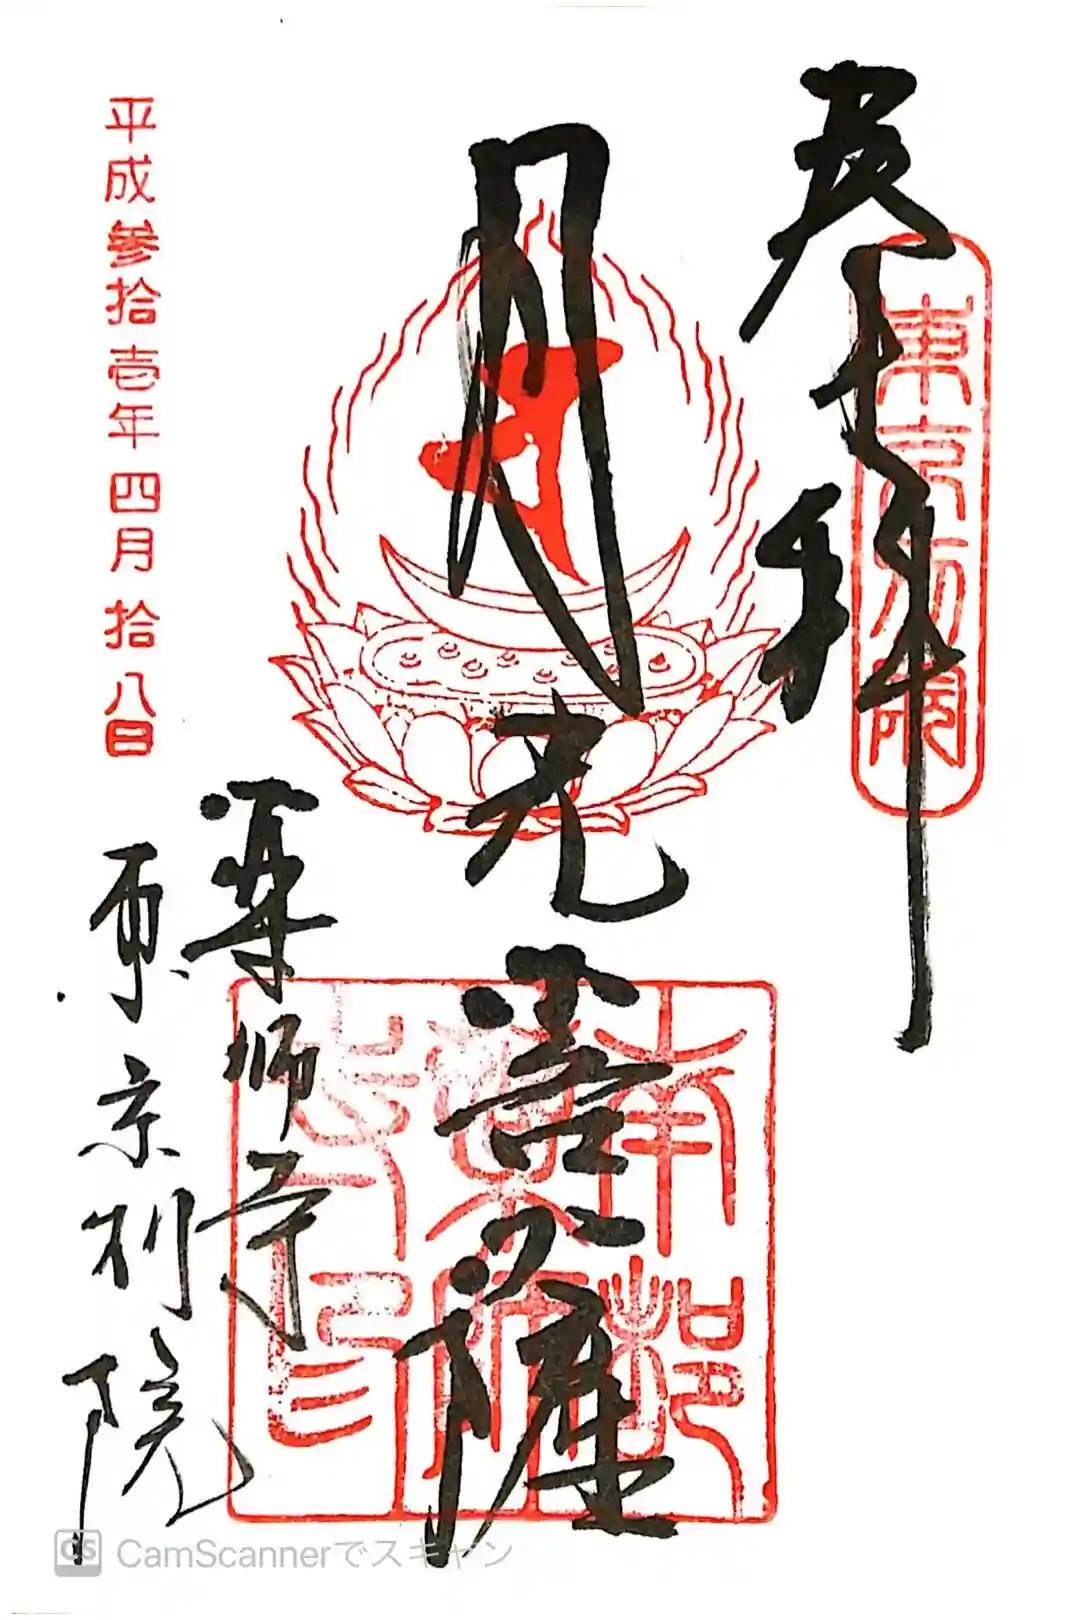 奉拝
東京別院
月光菩薩
南都
薬師
寺印
薬師寺
東京別院
平成参拾壱年四月拾八日
CS CamScannerでスキャン